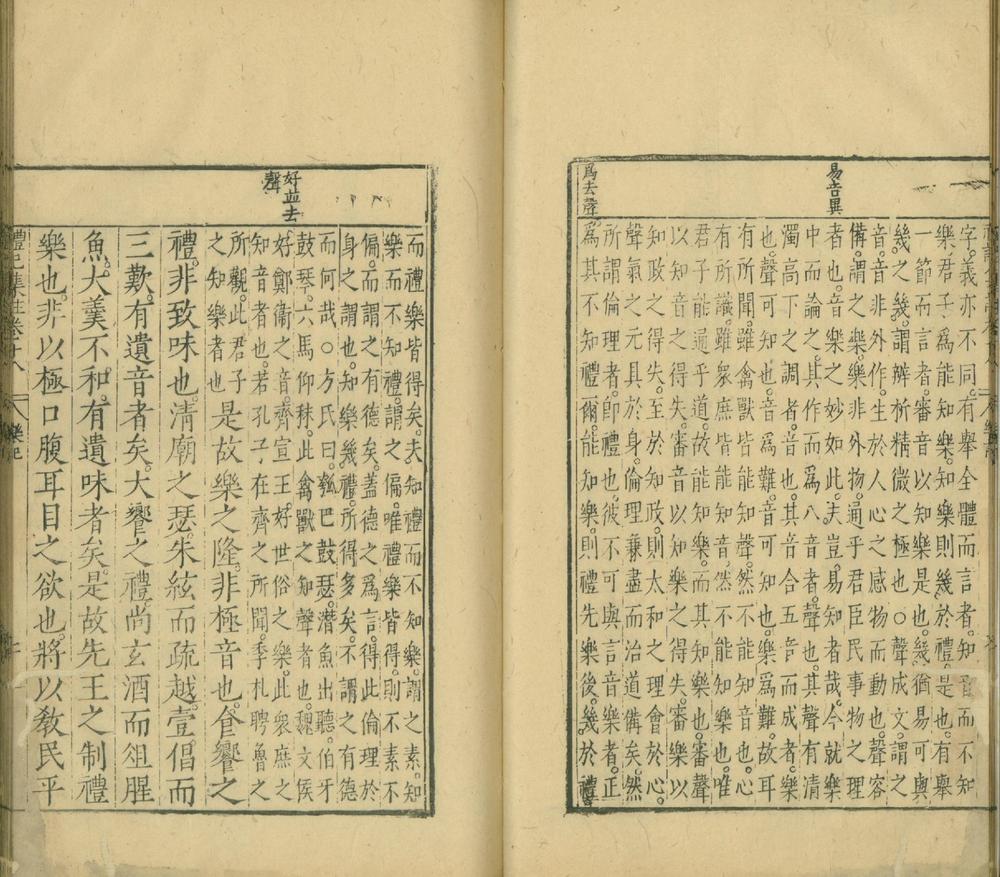 易音異
爲去聲
字。義亦不同。有舉全體而言者。知音而不知
樂。君子爲能知樂。知樂則幾於禮是也。有舉
一節而言者。審音以知樂是也。幾猶易可與
幾之幾。謂辨析精微之極也。○聲成文。謂之
音。音非外作。生於人心之感物而動也。聲容
備。謂之樂。樂非外物。通乎君臣民事物之理
者也。音樂之妙如此。夫豈易知者哉。今就樂
中而論之。其作而爲八音者。聲也。其聲有清
濁高下之調者。音也。其音合五音而成者。樂
也。聲可知也。音爲難。音可知也。樂爲難。故耳
有所聞。雖禽獸皆能知聲。然不能知音也。心
有所識。雖衆庶皆能知音。然不能知樂也。唯
君子能通乎道。故能知樂。而其知樂也。審聲
以知音之得失。審音以知樂之得失。審樂以
知政之得失。至於知政。則太和之理會於心。
聲氣之元具於身。倫理兼盡而治道備矣。然
所謂倫理者。即禮也。彼不可與言音樂者。正
爲其不知禮爾。能知樂。則禮先樂後。幾於禮
好並去
聲
而禮樂皆得矣。夫知禮而不知樂。謂之素。知
樂而不知禮。謂之偏。唯禮樂皆得。則不素不
偏。而謂之有德矣。蓋德之爲言。得此倫理於
身之謂也。知樂幾禮。所得多矣。不謂之有德
而何哉。○方氏曰。瓠巴鼓瑟。潛魚出聽。伯牙
鼓琴。六馬仰秣。此禽獸之知聲者也。魏文侯
好鄭衞之音。齊宣王好世俗之樂。此衆庶之
知音者也。若孔子在齊之所聞。季札聘魯之
所觀。此君子
之知樂者也
是故樂之隆。非極音也。食饗之
禮。非致味也。清廟之瑟。朱絃而疏越。壹倡而
三歎。有遺音者矣。大饗之禮。尚玄酒而俎腥
魚。大羹不和。有遺味者矣。是故先王之制禮
樂也。非以極口腹耳目之欲也。將以教民平
禮記集註卷十八
樂記